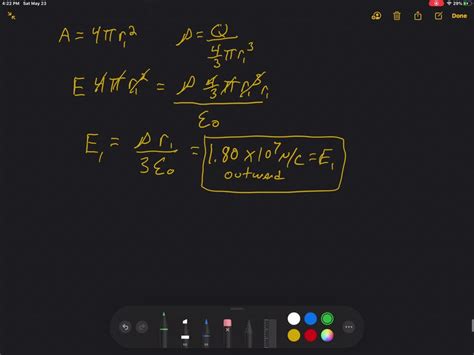 4:22 PM Sat May 23
29%
Done
A = 4πr₁² ρ = Q / (4/3 π r₁³)
E 4πr₁² = ρ 4/3 π r₁³ r₁ / ε₀
E₁ = ρ r₁ / 3ε₀ = 1.80 × 10⁷ N/C = E₁
outward